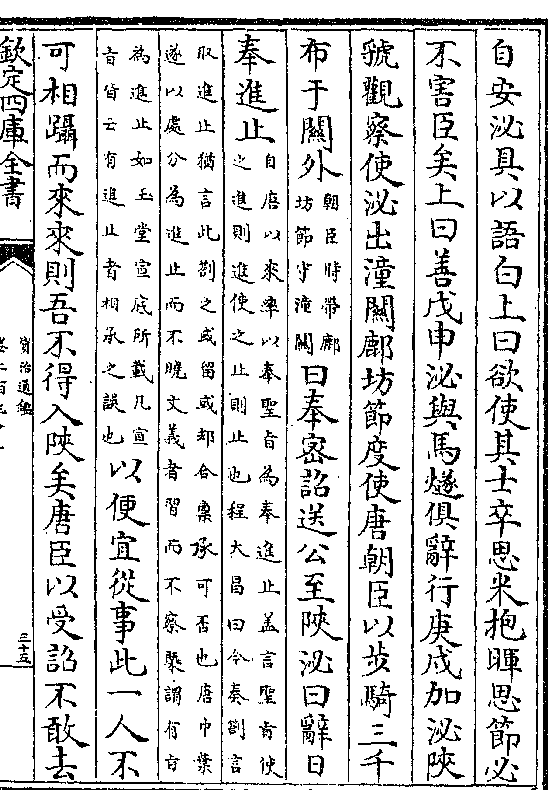 自安泌具以語白上曰欲使其士卒思米抱暉思節必
不害臣矣上曰善戊申泌與馬燧俱辭行庚戌加泌陝
虢觀察使泌出潼關鄜坊節度使唐朝臣以步騎三千
布于關外朝臣時帶鄜坊節守潼關曰奉密詔送公至陝泌曰辭日
奉進止自唐以來率以奉聖旨為奉進止盖言聖旨使之進則進使之止則止也程大昌曰今奏劄言
取進止猶言此劄之或留或却合禀承可否也唐中葉遂以處分為進止而不曉文義者習而不察槩謂有旨
為進止如玉堂宣底所載凡宣旨皆云有進止者相承之誤也以便宜從事此一人不
可相躡而來來則吾不得入陝矣唐臣以受詔不敢去
欽定四庫全書
資治通鑑
三十五